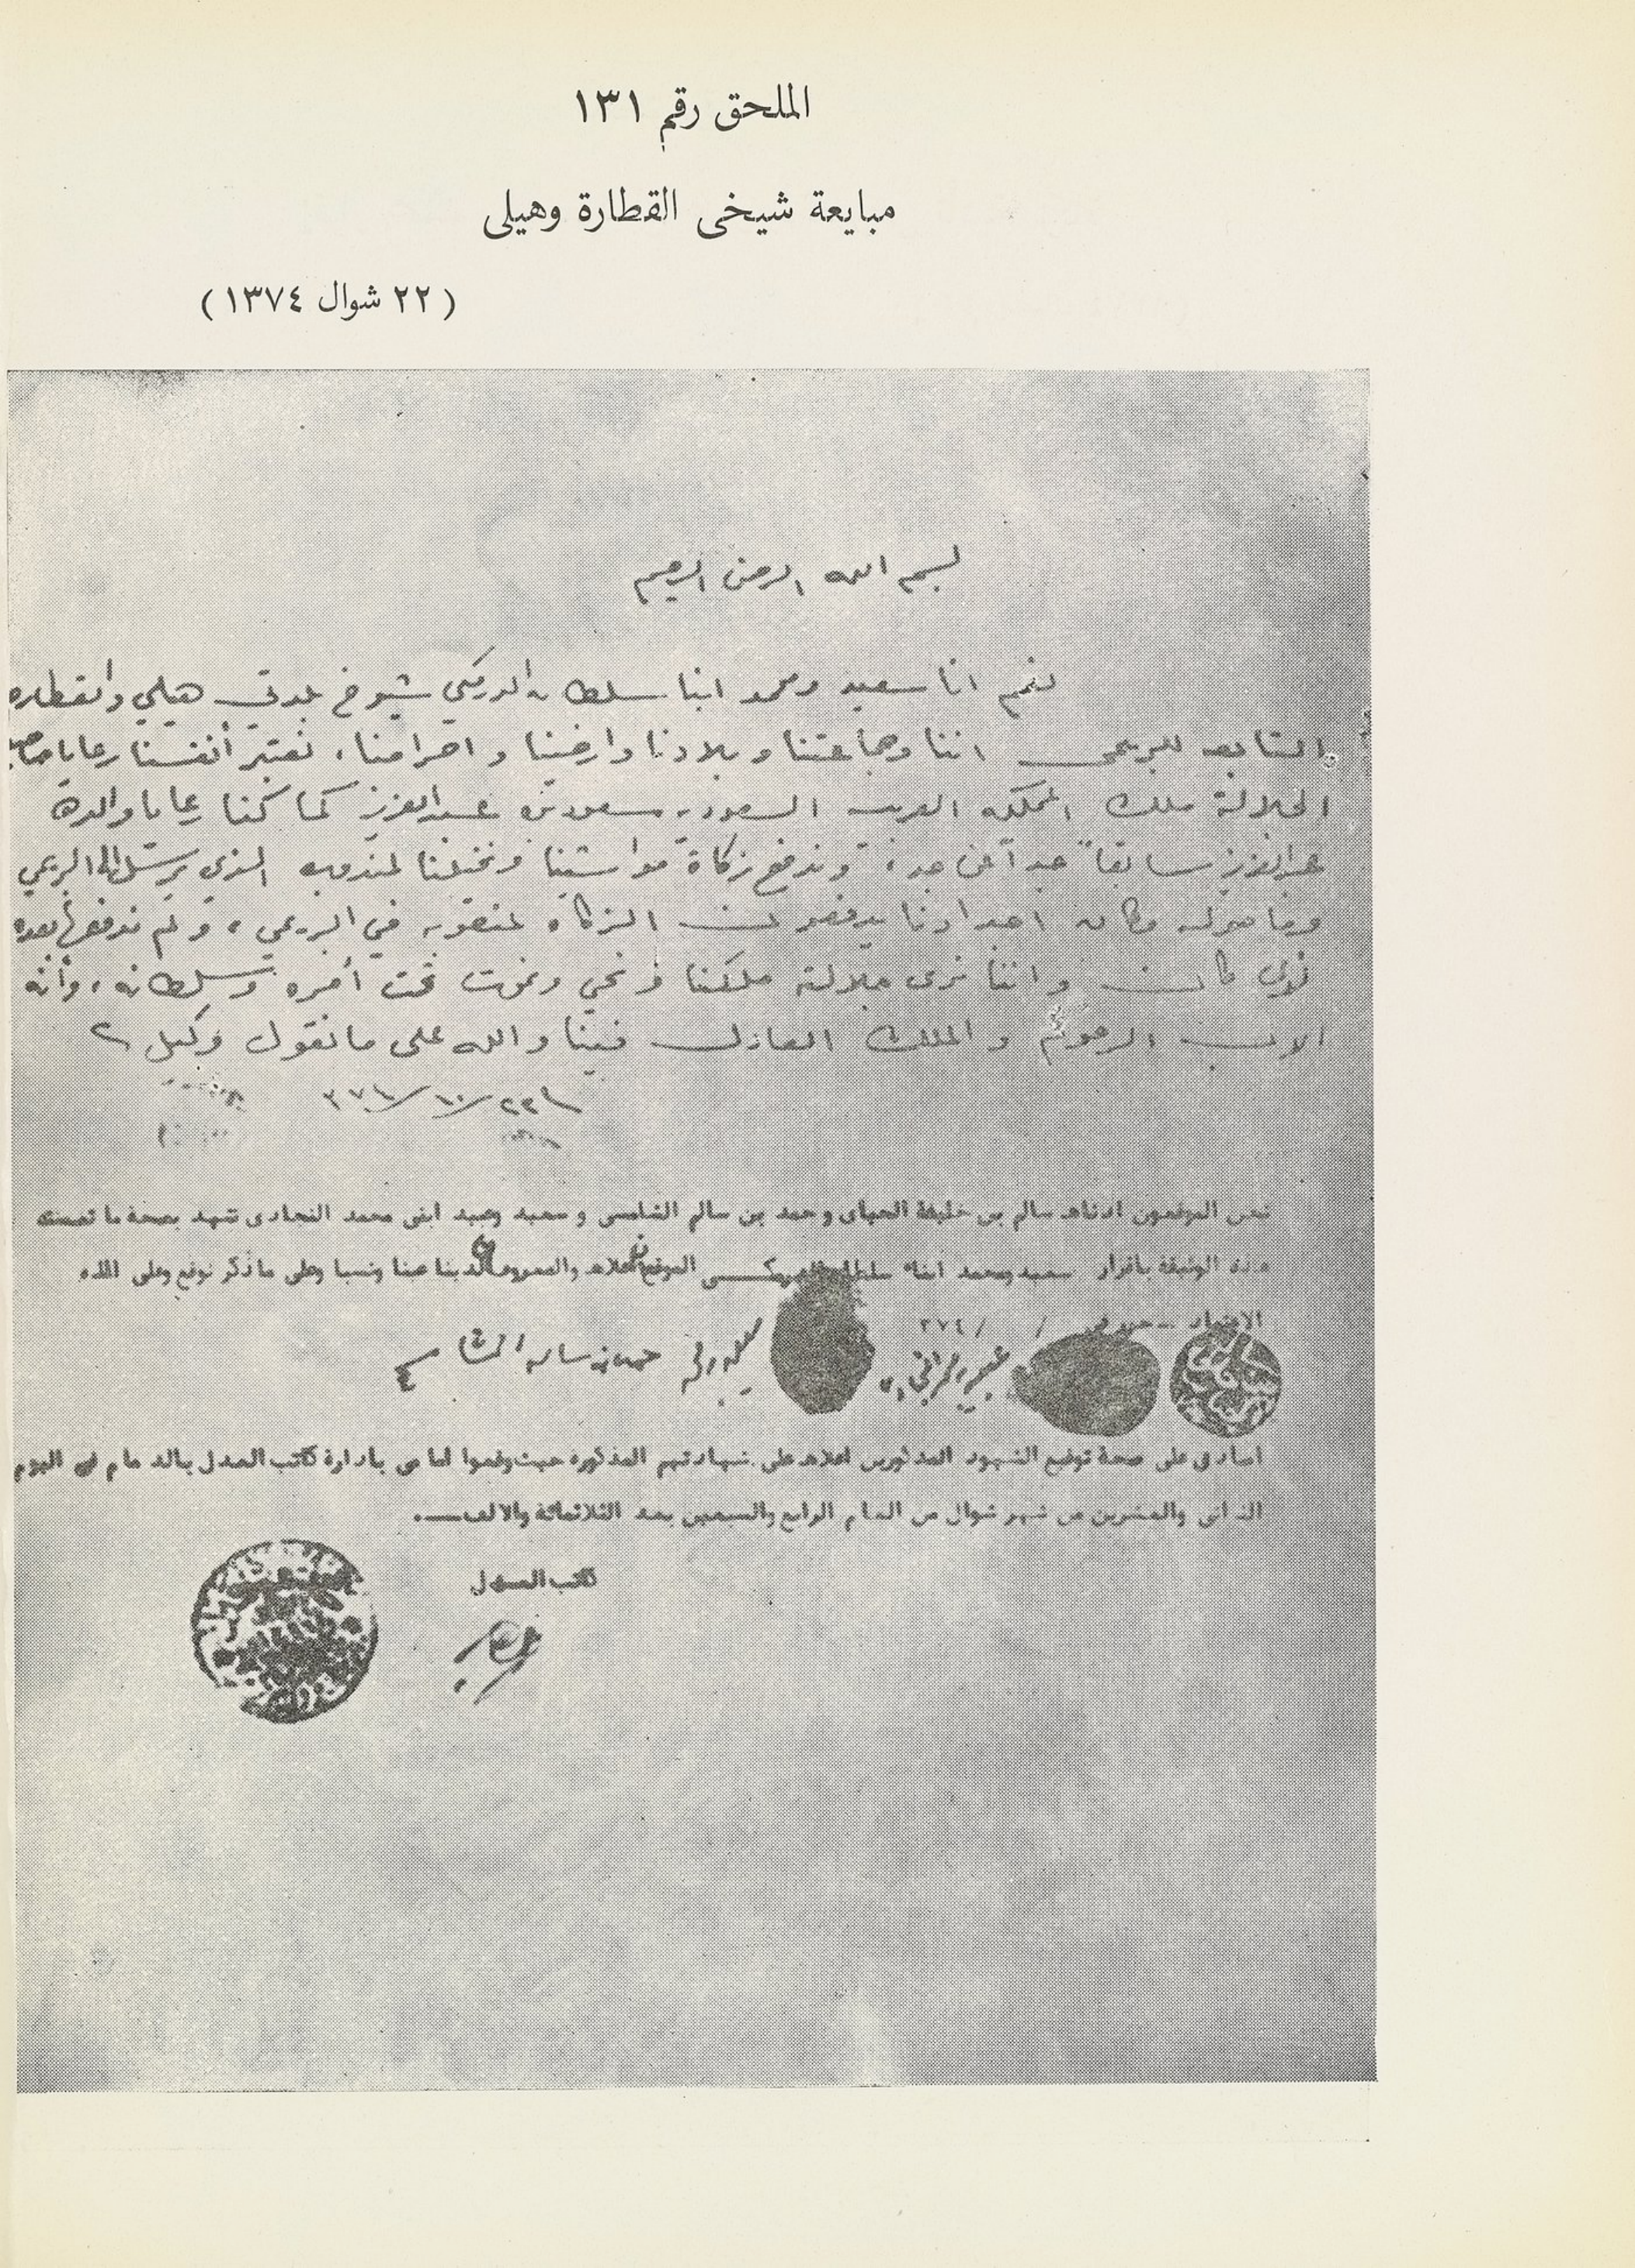 الملحق رقم ١٣١
مبايعة شيخى القطارة وهيلى
( ٢٢ شوال ١٣٧٤ )
بسم الله الرحمن الرحيم
نعم انا سعيد ومحمد ابنا سلطان الدرمكي شيوخ بلدتي هيلي والقطاره
التابعه للبريمى اننا وجماعتنا وبلادنا واراضينا واحرامنا، نعتبر أنفسنا رعايا صاحب
الجلالة ملك المملكه العربيه السعوديه سعود بن عبدالعزيز كما كنا رعايا والده
عبدالعزيز سابقاً جداً عن جد، وندفع زكاة مواشينا ونخيلنا لمندوبه الذي يرسل الى البريمي
وما حوله وكان اجدادنا يدفعون الزكاه في البريمي، ولم ندفعها بعده
لأى كان واننا نرى جلالة ملكنا ونحي ونموت تحت أمره وسلطانه، وأنه
الاب الرحوم والملك العادل فينا والله على ما نقول وكيل
نحن الموقعون ادناه سالم بن خليفة الحبـاى وحمد بن سالم الشامسى و سعيد وعبيد ابنى محمد النجادى نشهد بصحة ما تضمنته
هذه الوثيقة باقرار سعيد ومحمد ابناء سلطان الدرمكـى الموقعان اعلاه والمعروفان لدينا عينا ونسبا وعلى ما ذكر نوقع وعلى الله
الاعتماد - حرر فى / / ٣٧٤
حمد بن سالم الشامسي
اصادق على صحة توقيع الشهود المذكورين اعلاه على شهادتهم المذكوره حيث وقعوا امامى بادارة كاتب العدل بالدمام فى اليوم
الثانى والعشرين من شهر شوال من العام الرابع والسبعين بعد الثلاثمائة والالف.
كاتب العدل